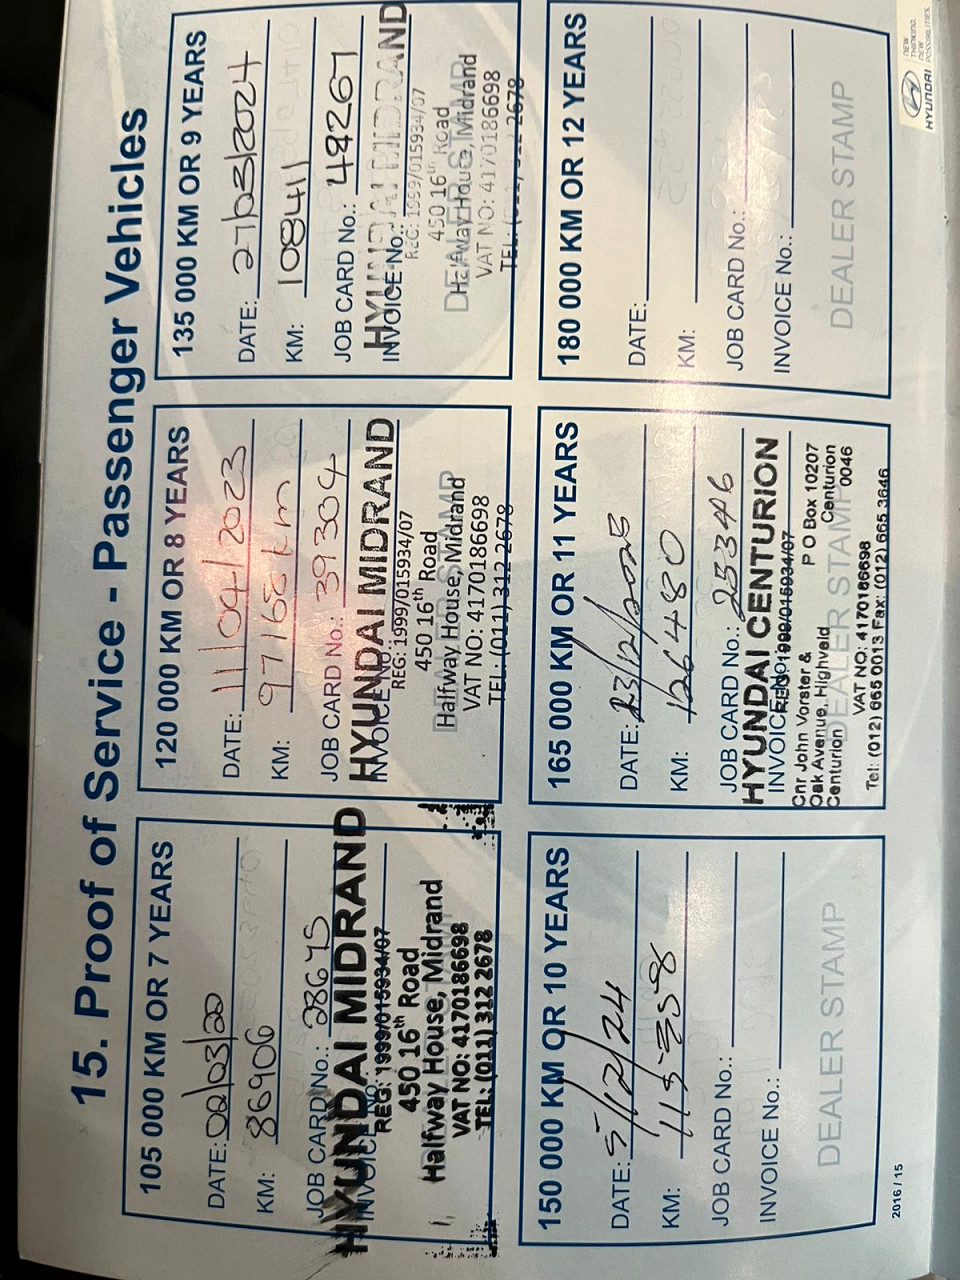 15. Proof of Service - Passenger Vehicles
105 000 KM OR 7 YEARS
DATE: 02/03/22
KM: 86906
JOB CARD No.: 28645
INVOICE No.:
HYUNDAI MIDRAND
REG: 1999/015934/07
450 16th Road
Halfway House, Midrand
VAT NO: 4170186698
TEL: (011) 312 2678
120 000 KM OR 8 YEARS
DATE: 11/04/2023
KM: 97168km
JOB CARD No.: 39304
INVOICE No.:
HYUNDAI MIDRAND
REG: 1999/015934/07
450 16th Road
DEALER STAMP
Halfway House, Midrand
VAT NO: 4170186698
TEL: (011) 312 2678
135 000 KM OR 9 YEARS
DATE: 27/03/2024
KM: 108411
JOB CARD No.: 48267
HYUNDAI MIDRAND
INVOICE No.:
REG: 1999/015934/07
450 16th Road
DEALER STAMP
Halfway House, Midrand
VAT NO: 4170186698
TEL: (011) 312 2678
150 000 KM OR 10 YEARS
DATE: 5/12/24
KM:
JOB CARD No.:
INVOICE No.:
DEALER STAMP
165 000 KM OR 11 YEARS
DATE: 23/12/2025
KM: 126480
JOB CARD No.: 25346
HYUNDAI CENTURION
INVOICE No.:
REG: 1999/015934/07
Cnr John Vorster & P O Box 10207
Oak Avenue, Highveld Centurion
Centurion 0046
DEALER STAMP
VAT NO: 4170186698
Tel: (012) 665 0013 Fax: (012) 665 3646
180 000 KM OR 12 YEARS
DATE:
KM:
JOB CARD No.:
INVOICE No.:
DEALER STAMP
2016 / 15
HYUNDAI
NEW
THINKING.
NEW
POSSIBILITIES.